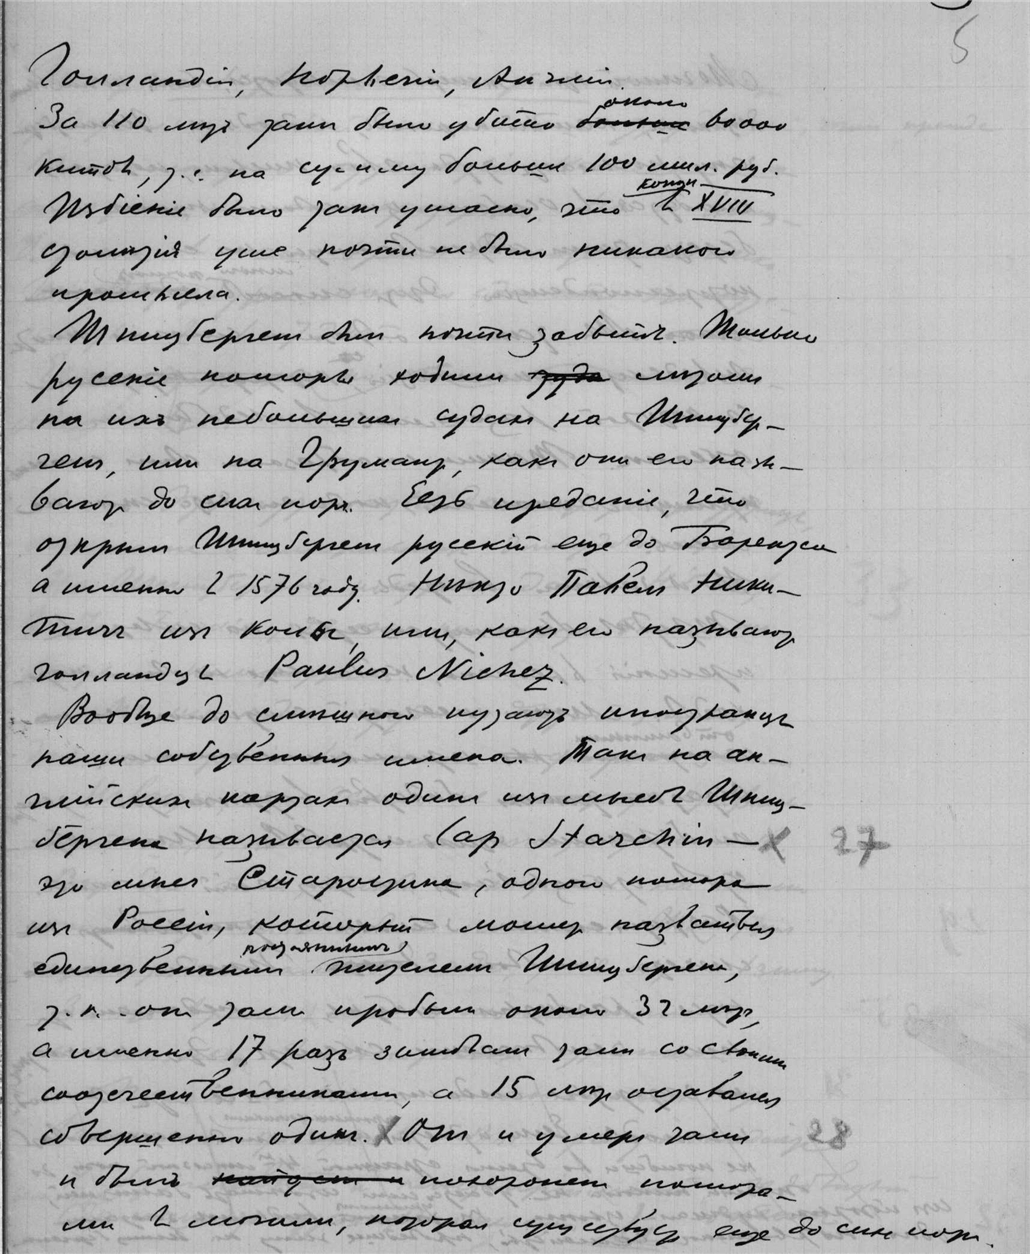 5
Голландіи, Норвегіи, Англіи.
За 110 лѣтъ тамъ было убито около 60000
китовъ, т.е. на сумму больше 100 мил. руб.
Избіеніе было такъ ужасно, что въ концѣ XVIII
столѣтія уже почти не было никакого
промысла.
Шпицбергенъ былъ почти забытъ. Только
русскіе поморы ходили туда лѣтомъ
на ихъ небольшихъ судахъ на Шпицбер-
генъ, или на Грумантъ, какъ они его назы-
ваютъ до сихъ поръ. Есть преданіе, что
открылъ Шпицбергенъ русскій еще до Баренца
а именно въ 1576 году. Нѣкто Павелъ Ники-
тичъ изъ Колы, или, какъ его называютъ
голландцы Paulus Nichez.
Вообще до смѣшного путаютъ иностранцы
наши собственныя имена. Такъ на ан-
глійскихъ картахъ одинъ изъ мысовъ Шпиц-
бергена называется Cap Starchin — X 27
это мысъ Старощина, одного помора
изъ Россіи, который можетъ назваться
единственнымъ постояннымъ жителемъ Шпицбергена,
т.к. онъ тамъ пробылъ около 32 лѣтъ,
а именно 17 разъ зимовалъ тамъ со своими
соотечественниками, а 15 лѣтъ оставался
совершенно одинъ. X Онъ и умеръ тамъ 28
и былъ найденъ и похороненъ помора-
ми въ могилѣ, которая существуетъ еще до сихъ поръ.